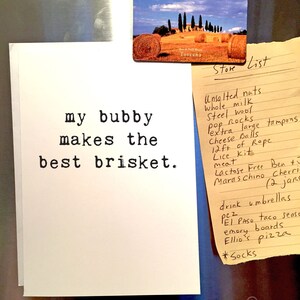 my bubby
makes the
best brisket.
Store List
Unsalted nuts
whole milk
Steel wool
pop Rocks
extra large tampons
Cheese Balls
12ft of Rope
Lice kit
meat
Lactose Free Ben +
Maraschino Cherri
(2 jars
drink umbrellas
pez
El Paso taco seas
emory boards
Ellio's pizza
* Socks